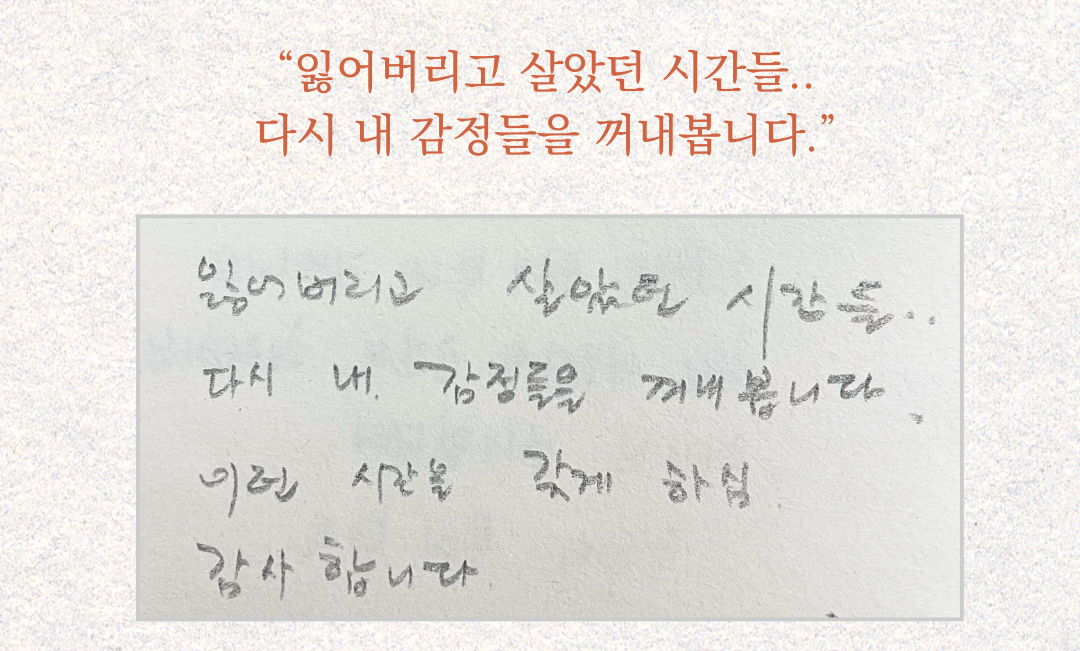 “잃어버리고 살았던 시간들..
다시 내 감정들을 꺼내봅니다.”
잃어버리고 살았던 시간들..
다시 내 감정들을 꺼내봅니다.
이런 시간을 갖게 하심
감사합니다.